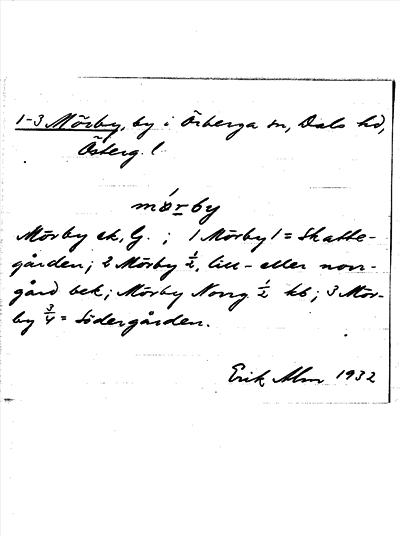 1-3 Mörby, by i Örberga sn, Dals hd,
Österg. l
mörby
Mörby ek, G. ; 1 Mörby 1 = Skatte-
gården; 2 Mörby ½, lill- eller norr-
gård bek; Mörby Norrg ½ kb; 3 Mör-
by ¾ = Södergården.
Erik Alm 1932